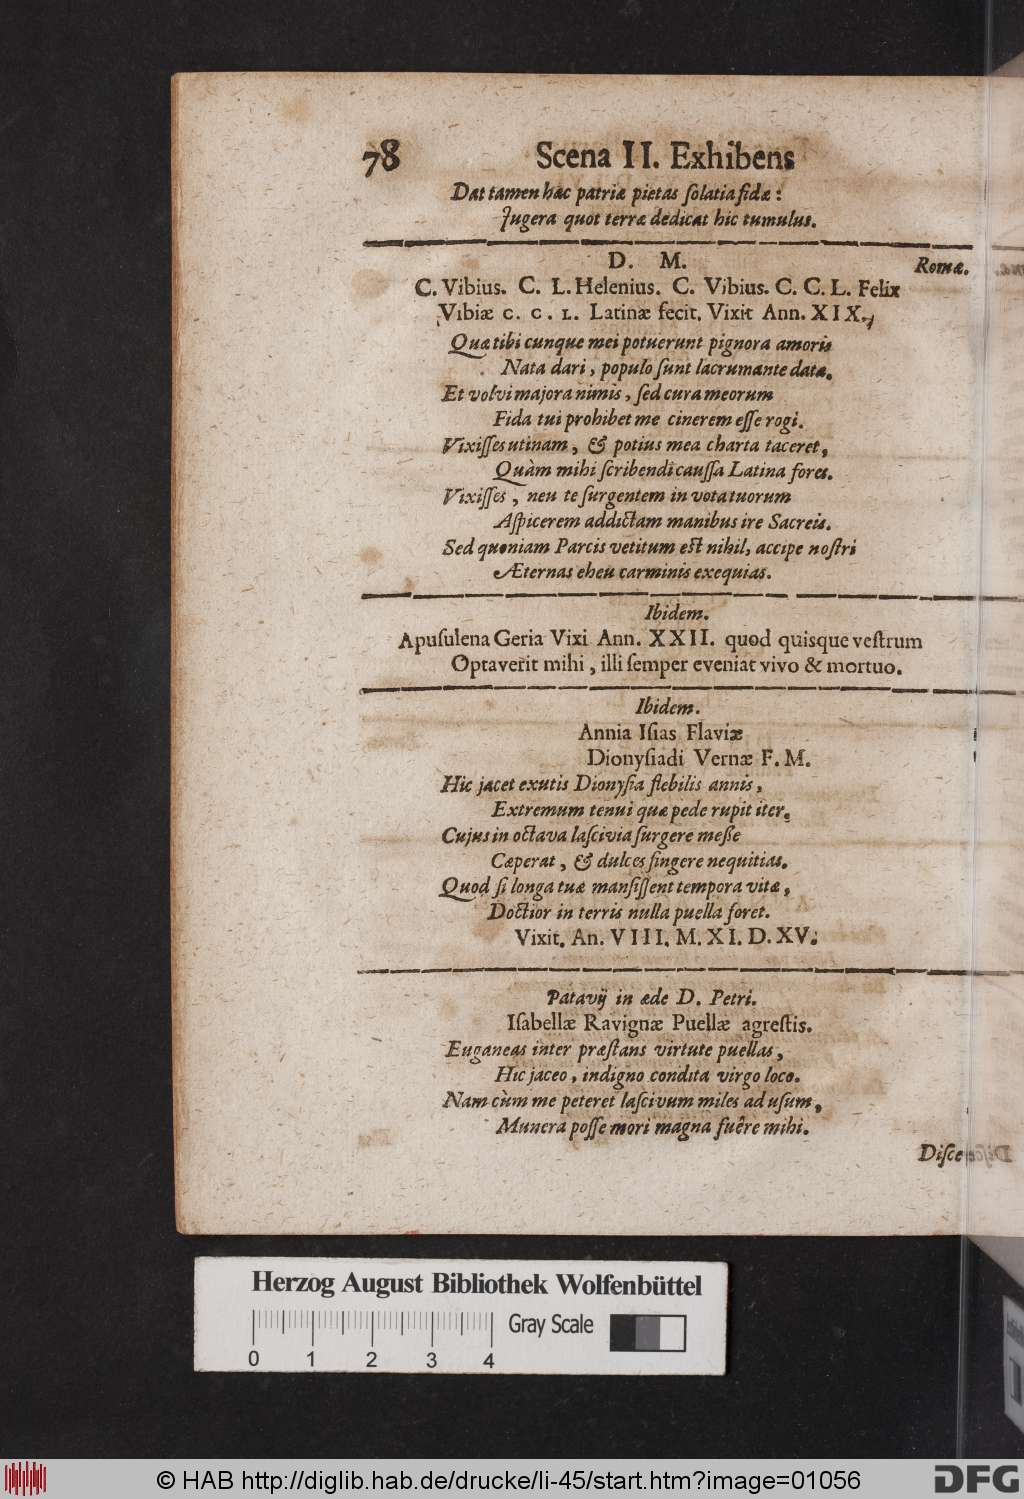 78 Scena II. Exhibens
Dat tamen hæc patriæ pietas ſolatia fidæ:
Jugera quot terræ dedicat hic tumulus.
D. M. Romæ.
C. Vibius. C. L. Helenius. C. Vibius. C. C. L. Felix
Vibiæ C. C. L. Latinæ fecit. Vixit Ann. XIX.
Quæ tibi cunque mei potuerunt pignora amoris
Nata dari, populo ſunt lacrumante data.
Et volvi majora nimis, ſed cura meorum
Fida tui prohibet me cinerem eſſe rogi.
Vixiſſes utinam, & potius mea charta taceret,
Quàm mihi ſcribendi cauſſa Latina fores.
Vixiſſes, neu te ſurgentem in vota tuorum
Aſpicerem addictam manibus ire Sacreis.
Sed quoniam Parcis vetitum eſt nihil, accipe noſtri
Æternas eheu carminis exequias.
Ibidem.
Apuſulena Geria Vixi Ann. XXII. quod quisque veſtrum
Optaverit mihi, illi ſemper eveniat vivo & mortuo.
Ibidem.
Annia Iſias Flaviæ
Dionyſiadi Vernæ F. M.
Hic jacet exutis Dionyſia flebilis annis,
Extremum tenui quæ pede rupit iter.
Cujus in octava laſcivia ſurgere meße
Cæperat, & dulces fingere nequitias.
Quod ſi longa tuæ manſiſſent tempora vitæ,
Doctior in terris nulla puella foret.
Vixit. An. VIII. M. XI. D. XV.
Patavij in æde D. Petri.
Iſabellæ Ravignæ Puellæ agreſtis.
Euganeas inter præſtans virtute puellas,
Hic jaceo, indigno condita virgo loco.
Nam cùm me peteret laſcivum miles ad uſum,
Munera poſſe mori magna fuêre mihi.
Diſce
Herzog August Bibliothek Wolfenbüttel
Gray Scale
0 1 2 3 4
© HAB http://diglib.hab.de/drucke/li-45/start.htm?image=01056
DFG